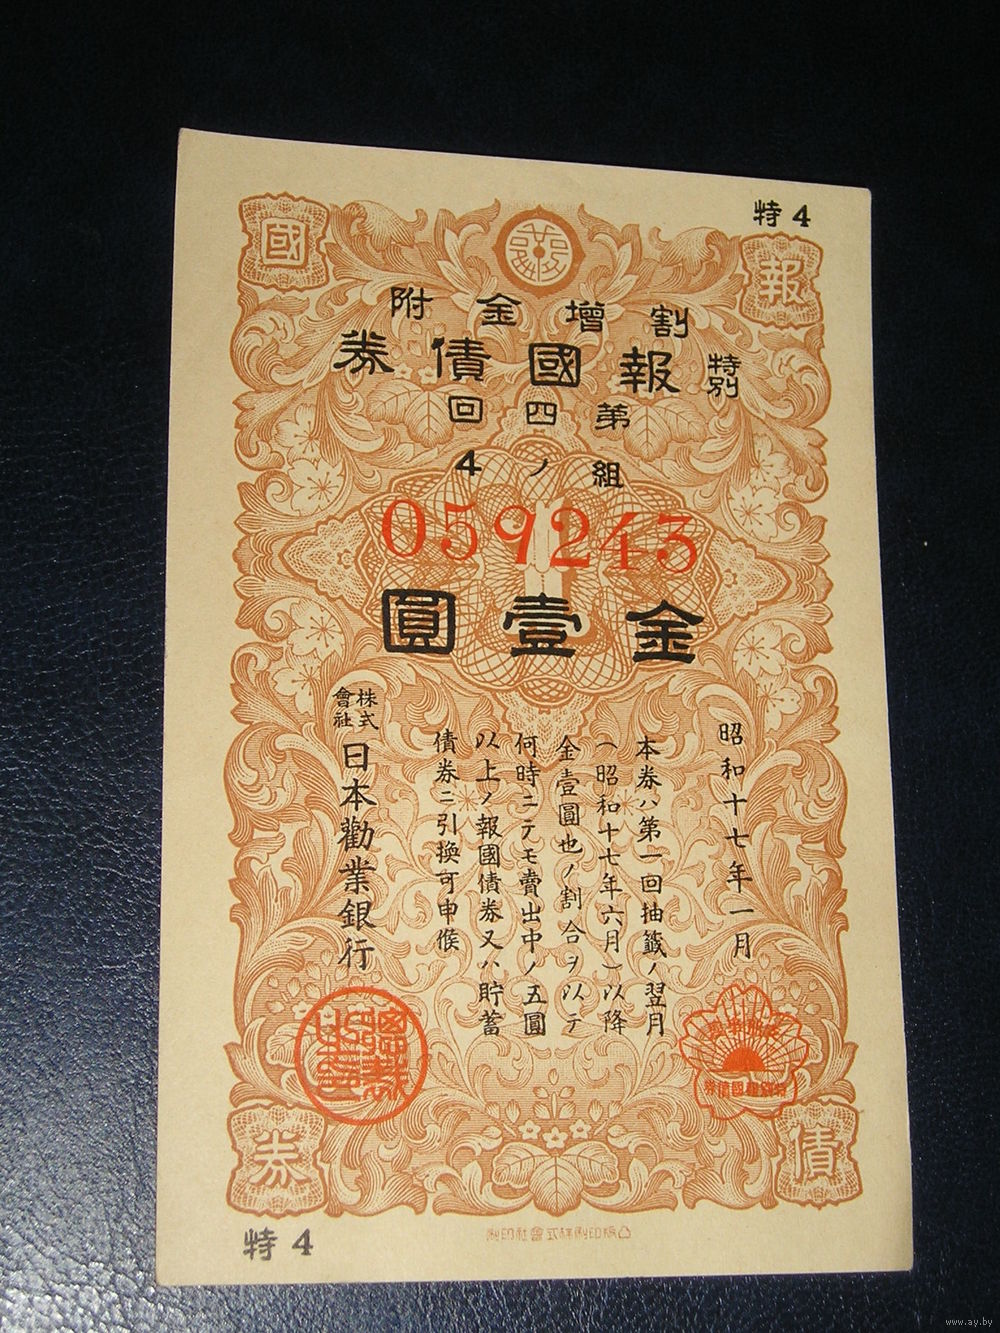 特4
國
報
割增金附
特別
報國債券
第四回
組ノ4
059243
金壹圓
昭和十七年一月
本券ハ第一回抽籤ノ翌月
(昭和十七年六月)以降
金壹圓也ノ割合ヲ以テ
何時ニテモ賣出中ノ五圓
以上ノ報國債券又ハ貯蓄
債券ニ引換可申候
株式會社
日本勸業銀行
特別報國債券
債
券
凸版印刷株式會社印刷
特4
www.ay.by